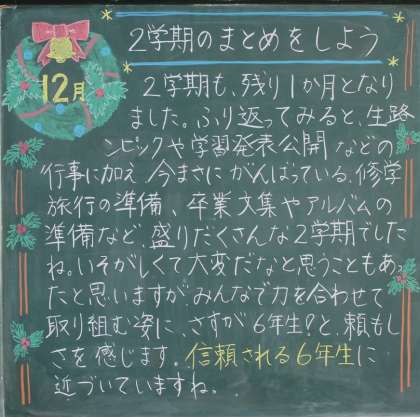 12月
2学期のまとめをしよう
2学期も、残り1か月となり
ました。ふり返ってみると、生路
ンピックや学習発表公開などの
行事に加え今まさにがんばっている、修学
旅行の準備、卒業文集やアルバムの
準備など、盛りだくさんな2学期でした
ね。いそがしくて大変だなと思うこともあっ
たと思いますが、みんなで力を合わせて
取り組む姿に、さすが6年生!と、頼もし
さを感じます。信頼される6年生に
近づいていますね。